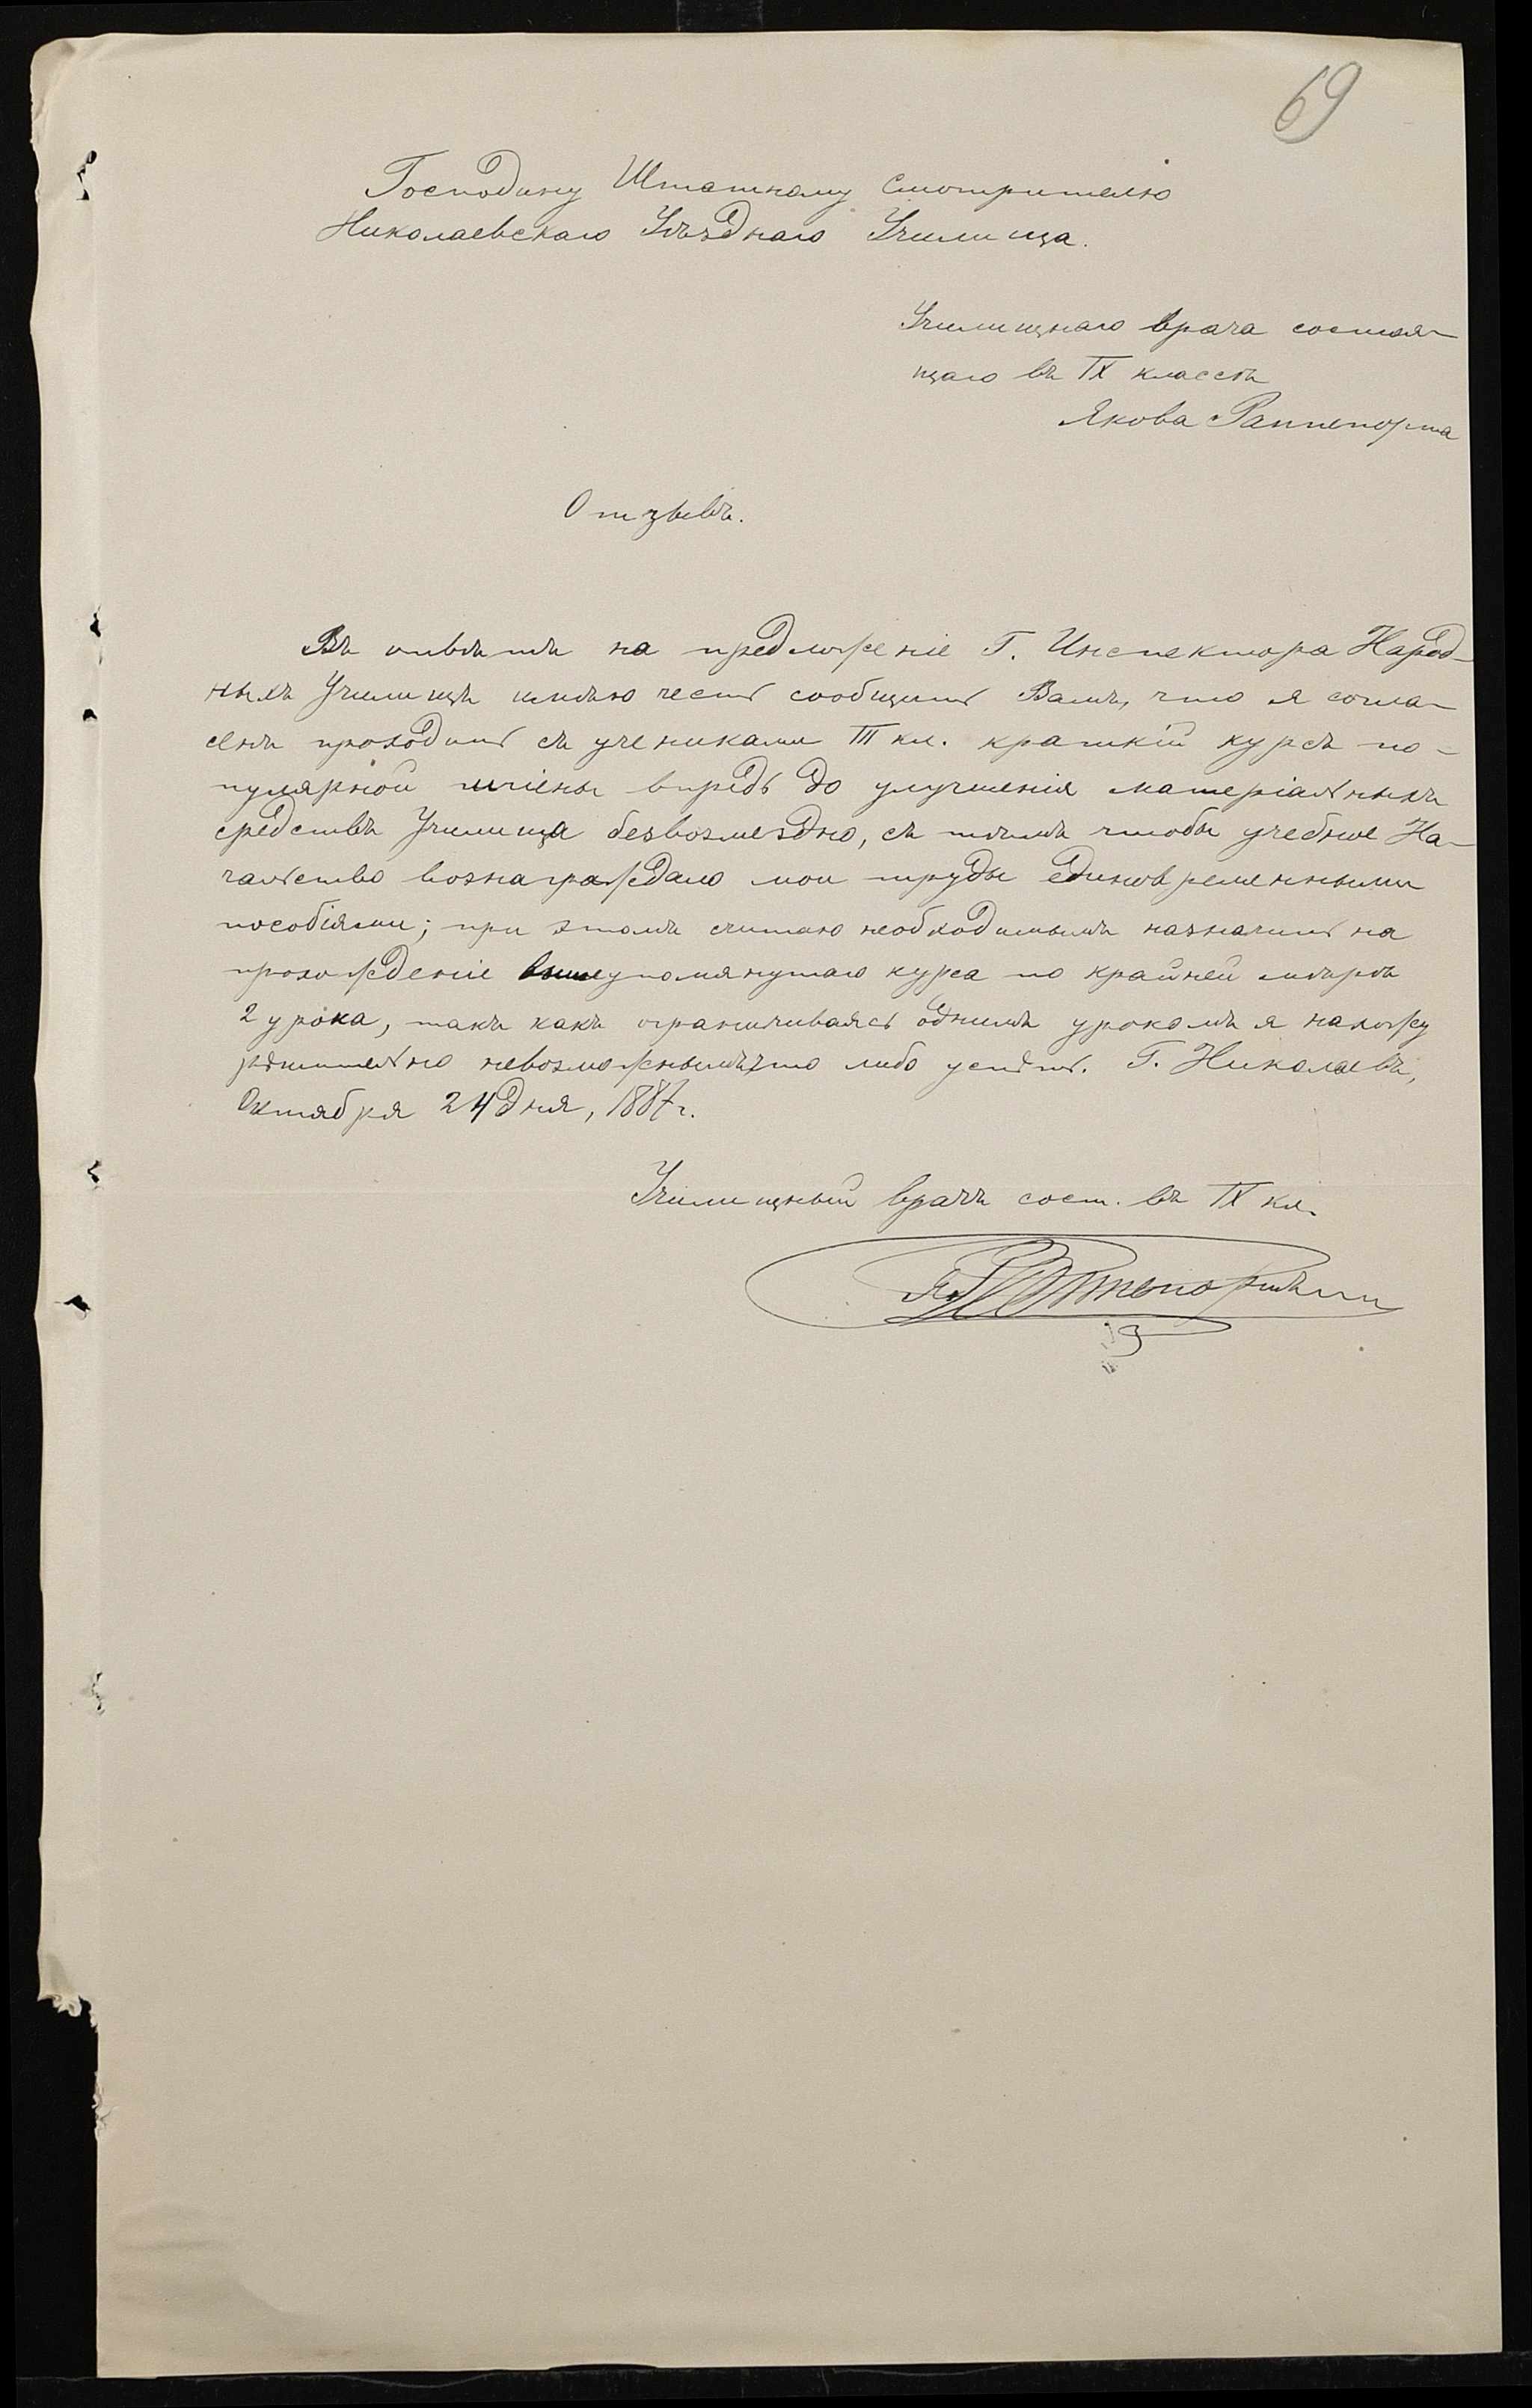 69
Господину Штатному Смотрителю
Николаевскаго Уѣзднаго Училища.
Училищнаго врача состоя-
щаго въ IX классѣ
Якова Раппепорта
Отзывъ.
Въ отвѣтъ на предложеніе Г. Инспектора Народ-
ныхъ Училищъ имѣю честь сообщить Вамъ, что я согла-
сенъ проходить съ учениками III кл. краткій курсъ по-
пулярной гигіены впредь до улучшенія матеріальныхъ
средствъ Училища безвозмездно, съ тѣмъ чтобы учебное На-
чальство вознаграждало мои труды единовременными
пособіями; при этомъ считаю необходимымъ назначить на
прохожденіе вышеупомянутаго курса по крайней мѣрѣ
2 урока, такъ какъ ограничиваясь однимъ урокомъ я нахожу
рѣшительно невозможнымъ что либо успѣть. Г. Николаевъ,
Октября 24 дня, 1887 г.
Училищный врачъ сост. въ IX кл.
Я. Раппепортъ